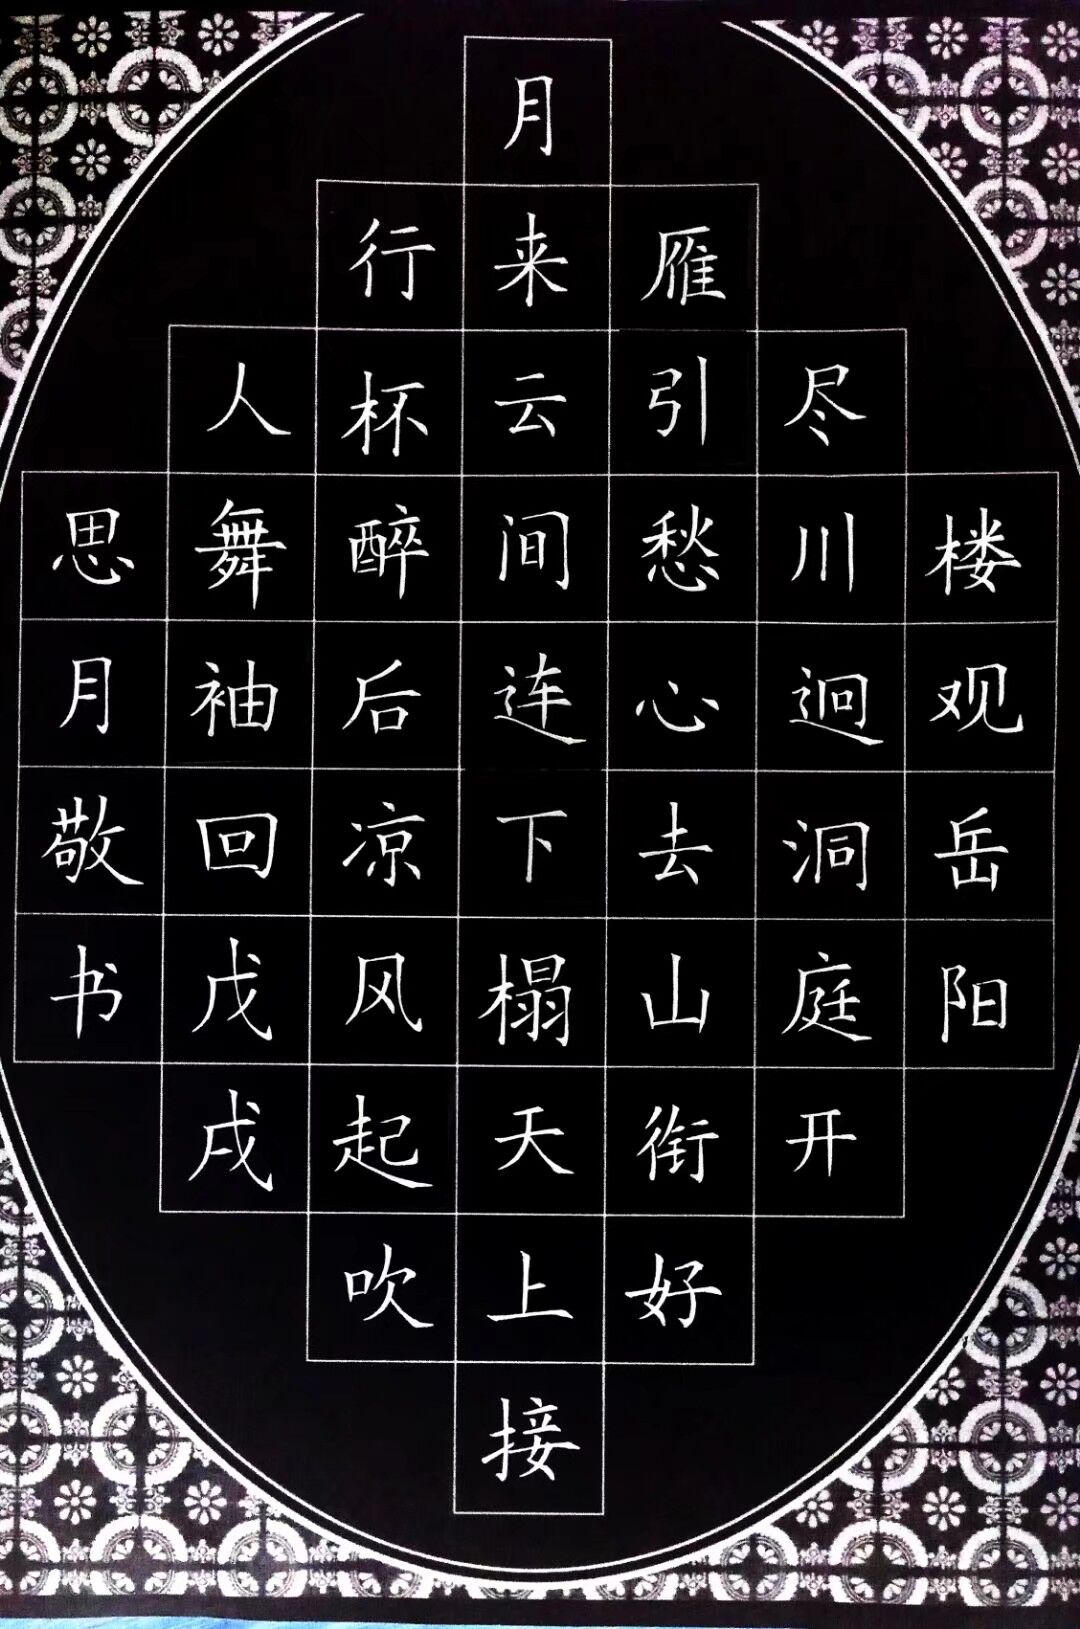 楼观岳阳
尽川迥洞庭开
雁引愁心去山衔好
月来云间连下榻天上接
行杯醉后凉风起吹
人舞袖回戊戌
思月敬书